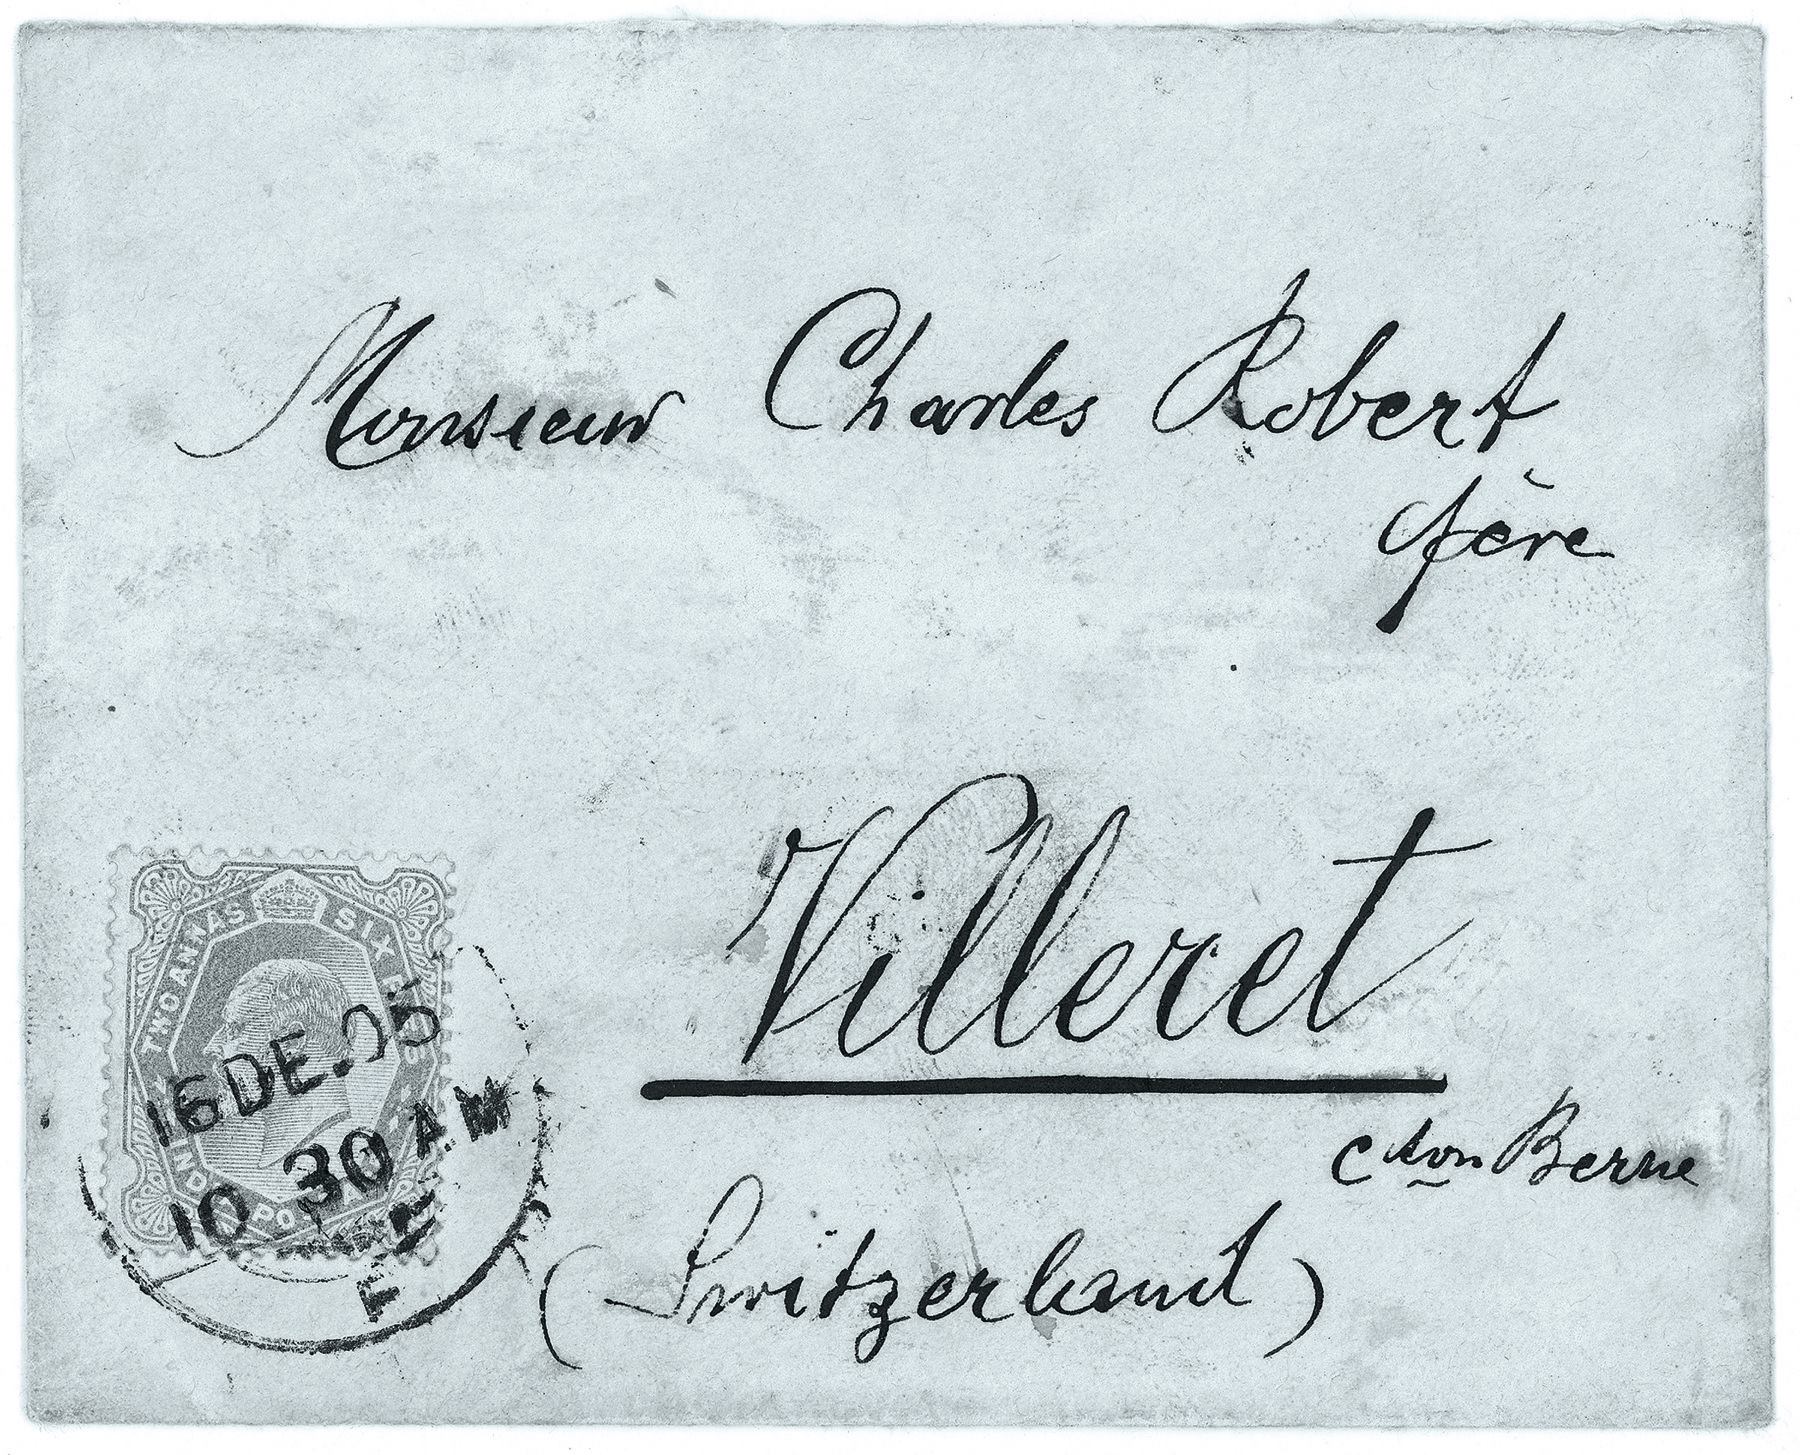 Monsieur Charles Robert
père
Villeret
cton Berne
(Switzerland)
TWO ANNAS SIX
16 DE.05
10 30 AM